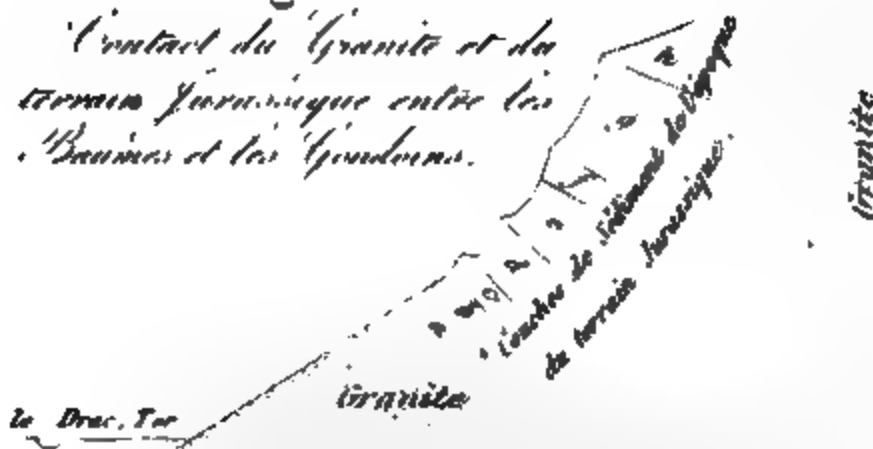 Contact du Granite et du
terrain Jurassique entre les
Baumes et les Gondoins.
Couches de Sédiment de l'époque
du terrain Jurassique.
Granite
Granite
le Drac. Tor